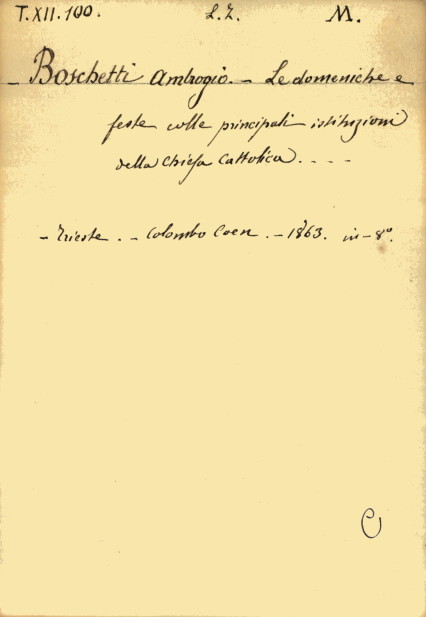 T.XII.100. L.Z. M.
- Boschetti Ambrogio. - Le domeniche e
feste colle principali istituzioni
della Chiesa Cattolica. . - -
- Trieste. - Colombo Coen. - 1863. in-8º.
C